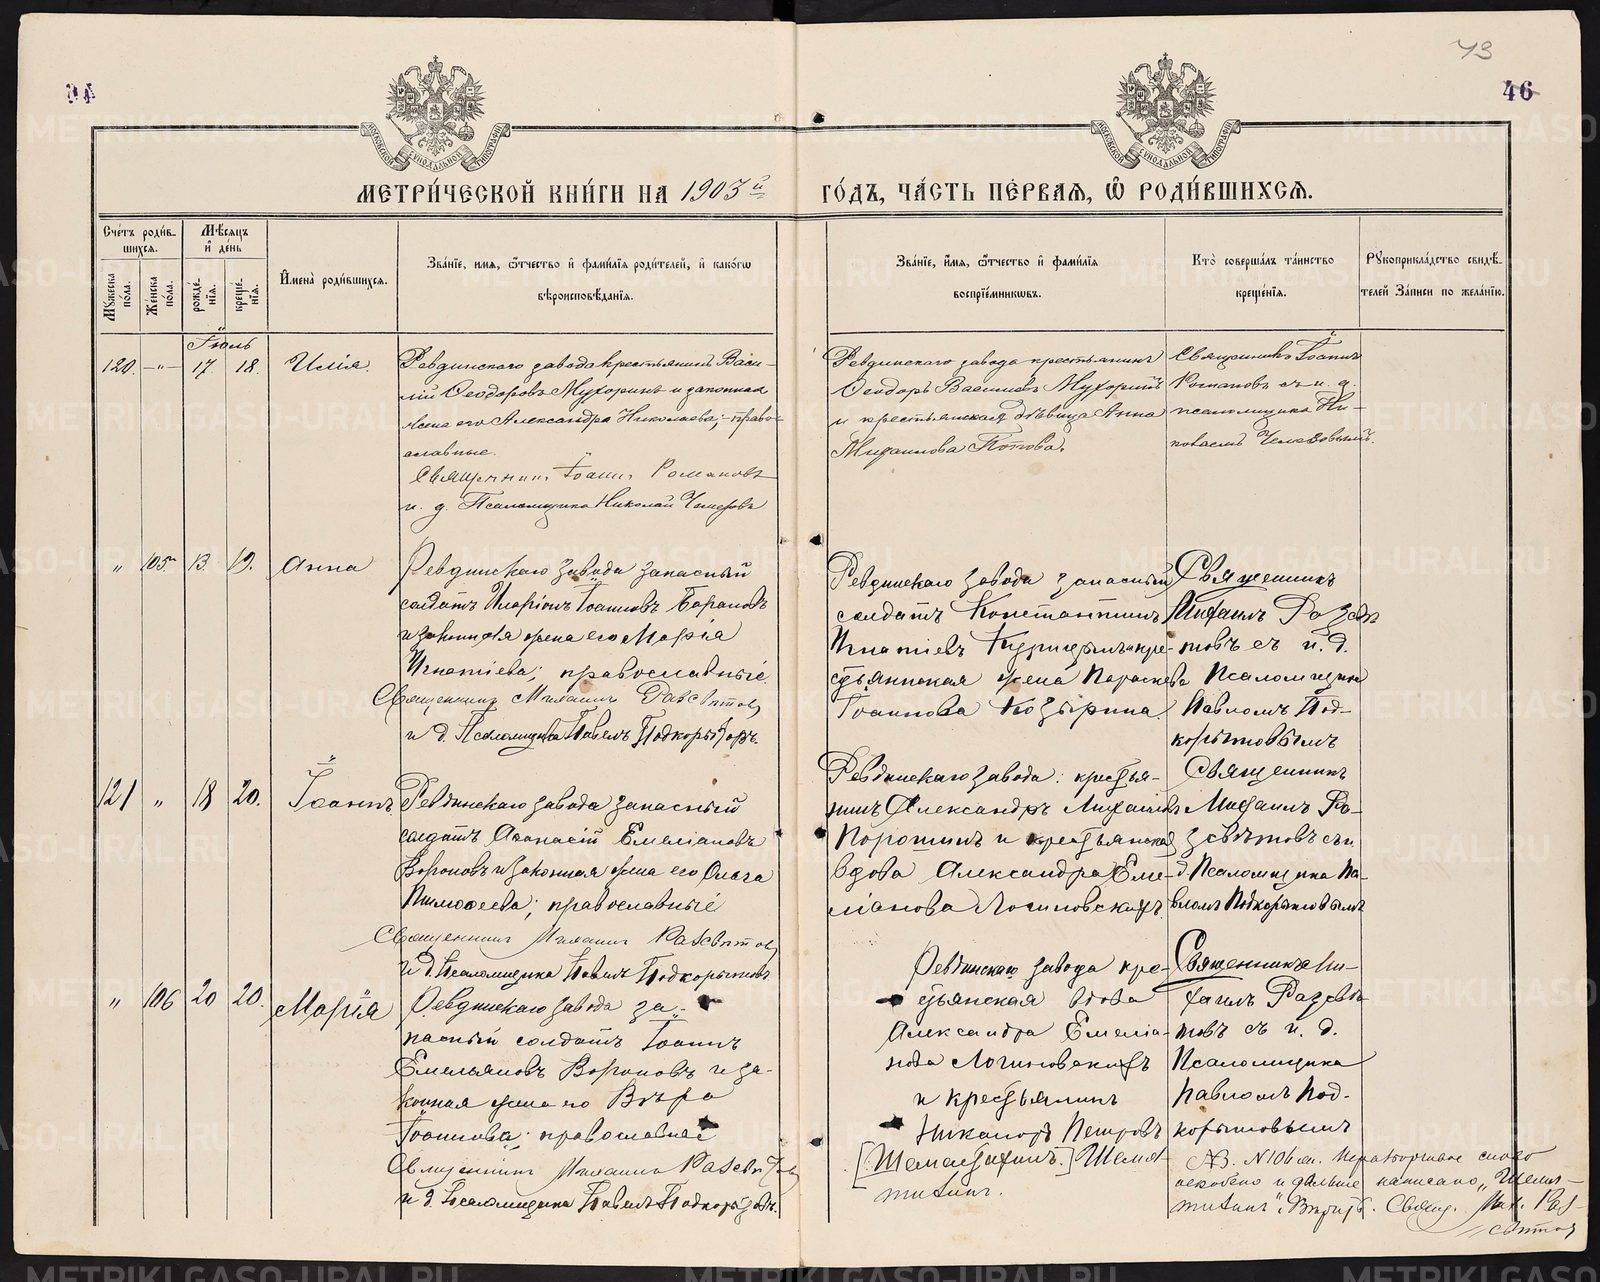 43
94
46
МОСКОВСКОЙ СѴНОДАЛЬНОЙ ТИПОГРАФІИ
МОСКОВСКОЙ СѴНОДАЛЬНОЙ ТИПОГРАФІИ
МЕТРИ́ЧЕСКОЙ КНИ́ГИ НА 1903й
ГО́ДЪ, ЧА́СТЬ ПЕ́РВАЯ, Ѡ҆ РОДИ́ВШИХСЯ.
Сче́тъ роди́в-
шихся.
Мѣ́сяцъ
и҆ де́нь
Му́жеска по́ла.
Же́нска по́ла.
рожде́-
нїя.
креще́-
нїя.
И҆мена̀ роди́вшихся.
Зва́нїе, имя, ѻ҆́тчество и҆ фами́лїя роди́телей, и҆ како́гѡ
вѣроисповѣ́данїя.
Зва́нїе, и҆́мя, ѻ҆́тчество и҆ фами́лїя
воспрїе́мникѡвъ.
Кто̀ соверша́лъ та́инство
креще́нїя.
Рꙋкоприкла́дство свидѣ́-
телей За́писи по жела́нїю.
Іюль
120. -"- 17 18. Илія.
Ревдинскаго завода крестьянинъ Васи-
лій Ѳеодоровъ Мухоринъ и законная
жена его Александра Николаева; - право-
славные.
Священникъ Іоаннъ Романовъ
и. д. Псаломщика Николай
Ревдинскаго завода крестьянинъ
Ѳеодоръ Васильевъ Мухоринъ
и крестьянская дѣвица Анна
Михаилова Попова.
Священникъ Іоаннъ
Романовъ съ и. д.
псаломщика Ни-
колаемъ
" 105 13. 19. Анна
Ревдинскаго завода запасный
солдатъ Иларіонъ Іоанновъ Барановъ
и законная жена его Марія
Игнатіева; православные
Священникъ Михаилъ Разсвѣтовъ
и д. Псаломщика Павелъ Подкорытовъ.
Ревдинскаго завода запасный
солдатъ Константинъ
Игнатіевъ кре-
стьянская жена Параскева
Іоаннова Козырина.
Священникъ
Михаилъ Разсвѣ-
товъ съ и. д.
Псаломщика
Павломъ Под-
корытовымъ
121 " 18 20. Іоаннъ
Ревдинскаго завода запасный
солдатъ Аѳанасій Емеліановъ
Вороновъ и законная жена его Ольга
Тимоѳеева; православные
Священникъ Михаилъ Разсвѣтовъ
и д. Псаломщика Павелъ Подкорытовъ
Ревдинскаго завода: крестья-
нинъ Александръ Михаиловъ
Порошинъ и крестьянская
вдова Александра Еме-
ліанова Логиновскихъ
Священникъ
Михаилъ Ра-
зсвѣтовъ съ и.
д. Псаломщика Па-
вломъ Подкорытовымъ
" 106 20 20. Марія
Ревдинскаго завода за-
пасный солдатъ Іоаннъ
Емельяновъ Вороновъ и за-
конная жена его Вѣра
Іоаннова; православные
Священникъ Михаилъ Разсвѣтовъ
и д. Псаломщика Павелъ Подкорытовъ.
Ревдинскаго завода кре-
стьянская вдова
Александра Емеліа-
нова Логиновскихъ
и крестьянинъ
Никаноръ Петровъ
Священникъ Ми-
хаилъ Разсвѣ-
товъ съ и. д.
Псаломщика
Павломъ Под-
корытовымъ
NB. N 106 слово
оскоблено и дальше написано
Вѣрить. Свящ. Мих. Раз-
свѣтовъ